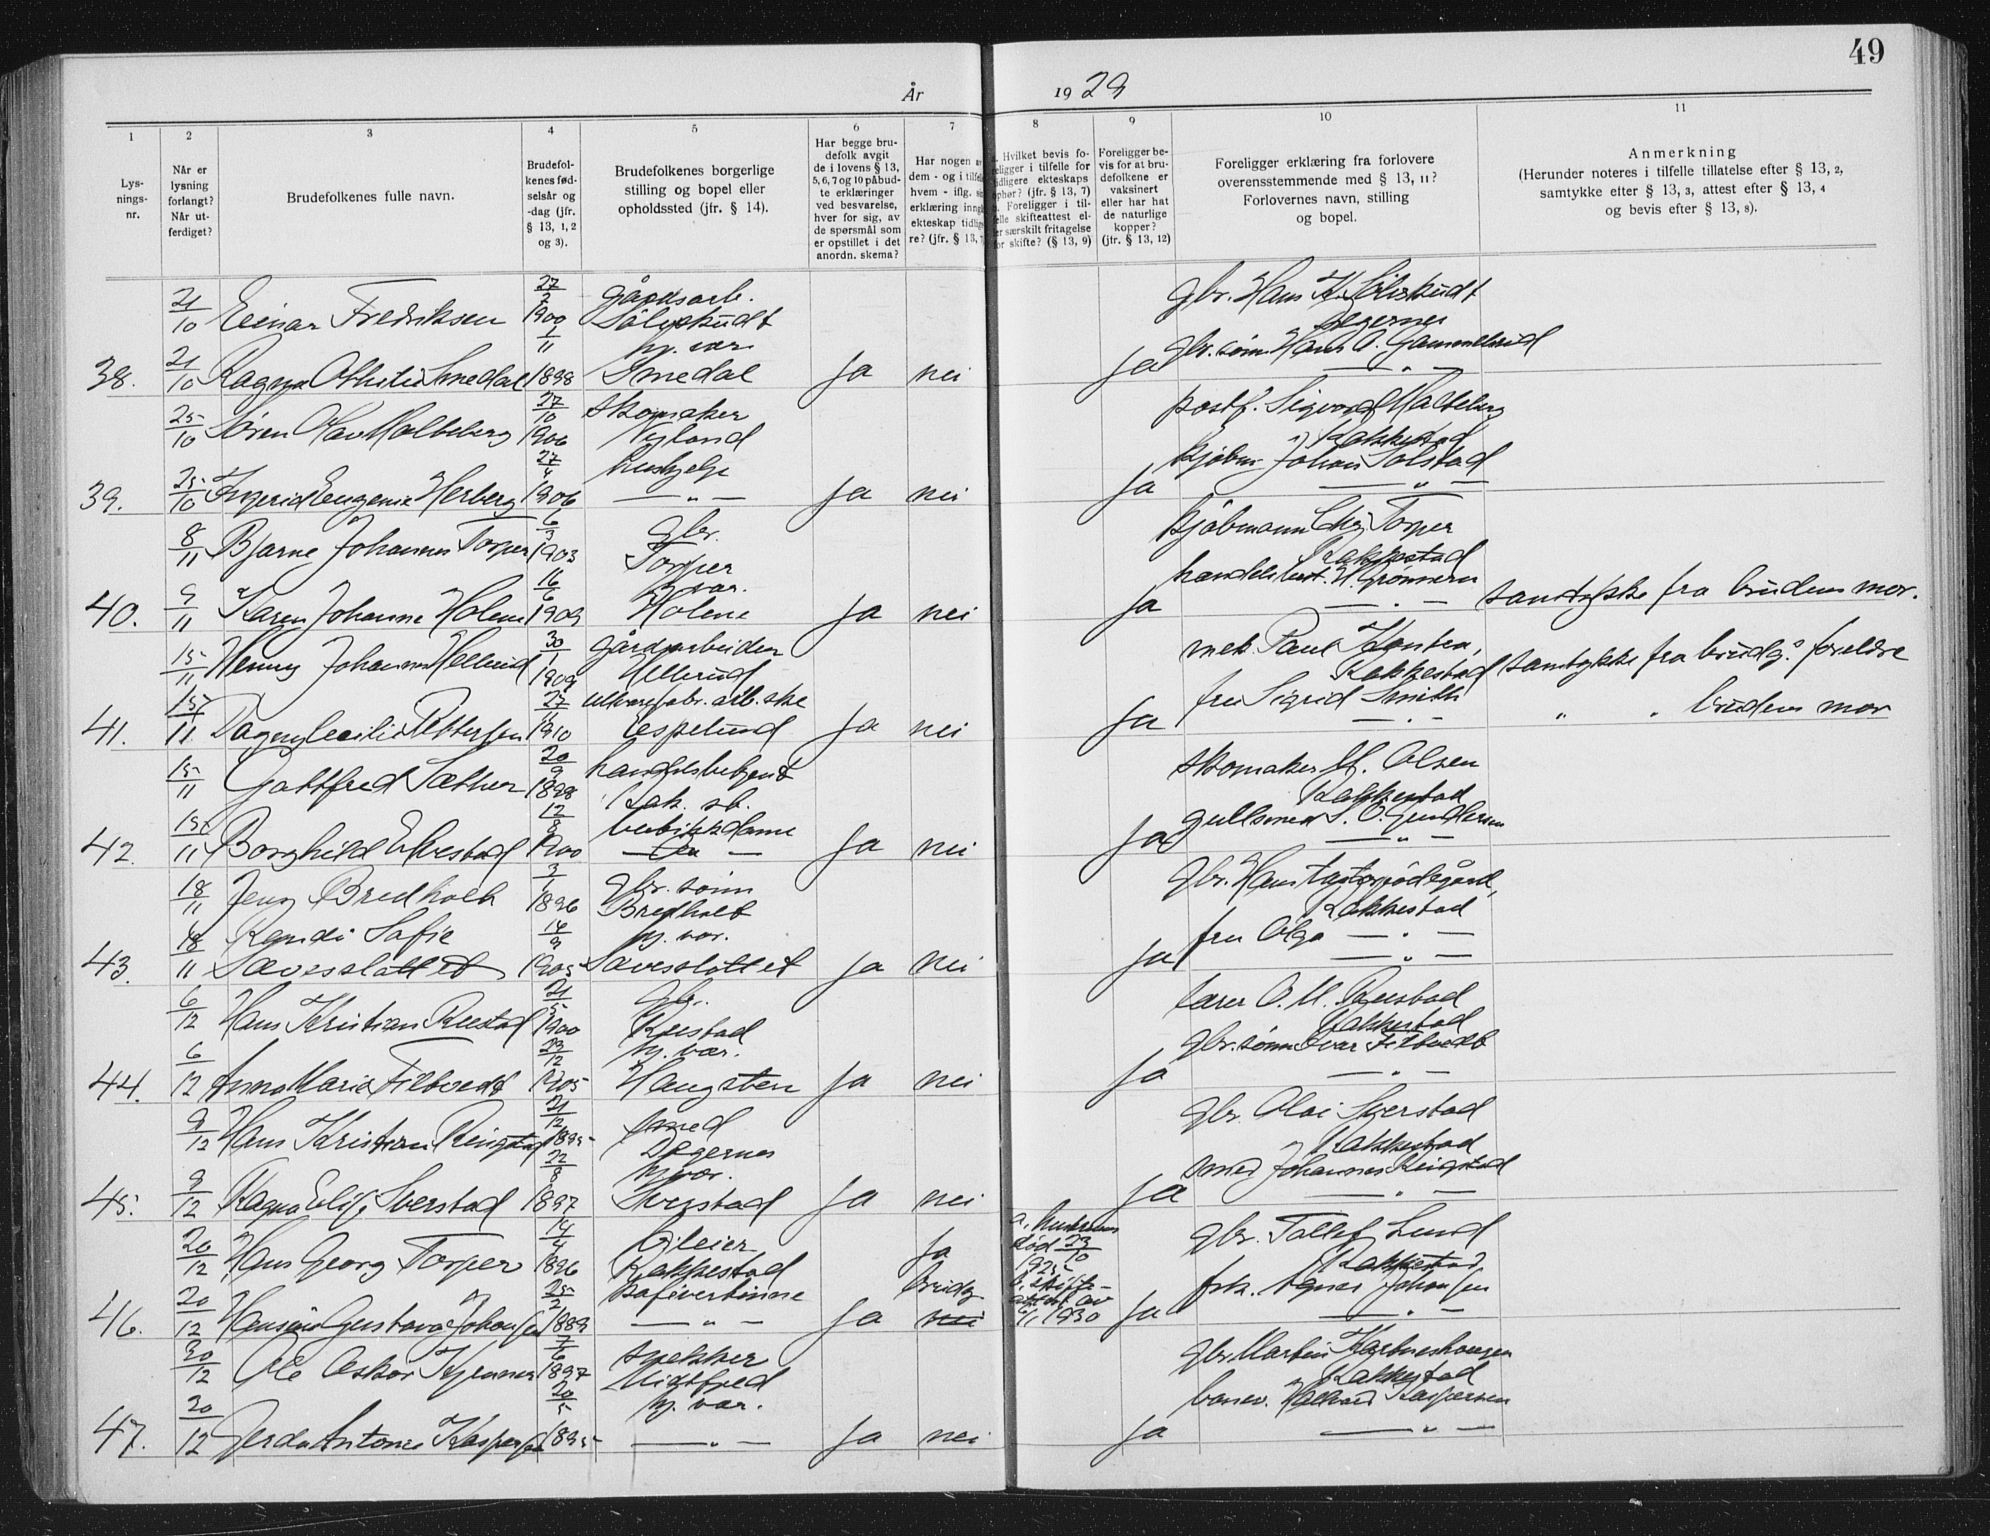 49
År 1929
1 2 3 4 5 6 7 8 9 10 11
Lys-
nings-
nr.
Når er
lysning
forlangt?
Når ut-
ferdiget?
Brudefolkenes fulle navn.
Brudefol-
kenes fød-
selsår og
-dag (jfr.
§ 13, 1, 2
og 3).
Brudefolkenes borgerlige
stilling og bopel eller
opholdssted (jfr. § 14).
Har begge bru-
defolk avgit
de i lovens § 13,
5, 6, 7 og 10 påbud-
te erklæringer
ved besvarelse,
hver for sig, av
de spørsmål som
er opstillet i det
anordn. skema?
Har nogen av
dem - og i tilfelle
hvem - iflg. sin
erklæring inngått
ekteskap tidlige-
re? (jfr. § 13, 7)
Hvilket bevis fo-
religger i tilfelle for
tidligere ekteskaps
ophør? (jfr. § 13, 7)
Foreligger i til-
felle skifteattest el-
ler særskilt fritagelse
for skifte? (§ 13, 9)
Foreligger be-
vis for at bru-
defolkene er
vaksinert
eller har hat
de naturlige
kopper?
(jfr. § 13, 12)
Foreligger erklæring fra forlovere
overensstemmende med § 13, 11?
Forlovernes navn, stilling
og bopel.
Anmerkning
(Herunder noteres i tilfelle tillatelse efter § 13, 2,
samtykke efter § 13, 3, attest efter § 13, 4
og bevis efter § 13, 8).
21/10 Einar Fredriksen 27/2 1900 gårdsarb. gbr. Hans K.
Degernes
hj. vær. gbr. sønn Hans O. Gammelsrud
38. 21/10 Ragna Othilie Smedal 1/11 1898 Smedal Ja nei Ja — " —
25/10 Søren Olav Malteberg 27/10 1906 skomaker postf. Sigvard Malteberg
Nyland Rakkestad
hushjelp kjøbm. Johan Solstad
39. 25/10 Ingrid Eugenie Herberg 27/4 1906 — " — Ja nei Ja — " —
8/11 Bjarne Johannes Torper 6/3 1903 gbr. kjøbmann Chr. Torper
Torper Rakkestad
hj. vær. handelsbest. H. Grønnern
40. 9/11 Karen Johanne Holene 16/6 1909 Holene Ja nei Ja — " — samtykke fra brudens mor.
15/11 Henry Johannes Hellerud 30/1 1909 gårdsarbeider mek. Paul
Hellerud Rakkestad samtykke fra brudg.s foreldre
ullvarefabr. arb.ske fru Sigrid Smith
41. 15/11 Dagny Cecilie Pettersen 27/11 1910 Espelund Ja nei Ja — " — " " brudens mor
15/11 Gottfred Sæther 20/9 1898 handelsbetjent skomaker M. Olsen
Rak. st. Rakkestad
butikkdame gullsmed S. O. Gundersen
42. 15/11 Borghild Elvestad 12/8 1900 — " — Ja nei Ja — " —
18/11 Jens Bredholt 3/1 1896 gbr. sønn gbr. Hans
Bredholt Rakkestad
18/11 Randi Sofie 14/9 hj. vær. fru Olga — " —
43. Sævesslottet 1905 Sævesslottet Ja nei Ja — " —
6/12 Hans Kristian Rustad 21/5 1900 gbr. lærer O. M. Rustad
Rustad Rakkestad
hj. vær. gbr. sønn Ivar Filtvedt
44. 6/12 Anna Marie Filtvedt 23/12 1905 Haugsten Ja nei Ja — " —
9/12 Hans Kristian Ringstad 21/12 1895 smed gbr. Olai Sverstad
Degernes Rakkestad
hj. vær. smed Johannes Ringstad
45. 9/12 Ragna Elise Sverstad 22/8 1897 Sverstad Ja nei Ja — " —
20/12 Hans Georg Torper 14/4 1896 bileier Ja a. hustruens gbr. Tollef Lund
Rakkestad død 23/10 1925 Rakkestad
kafévertinne brudg. b. skifte- frk. Agnes Johansen
46. 20/12 Hansine Gustava Johansen 25/2 1889 — " — Ja nei attest av 6/1 1930 Ja — " —
20/12 Ole Oskar 7/6 1897 snekker gbr. Martin
Midtfjed Rakkestad
hj. vær. banev. Halvard Kaspersen
47. 20/12 Gerda Antonie Kaspersen 20/5 1895 — " — Ja nei Ja — " —